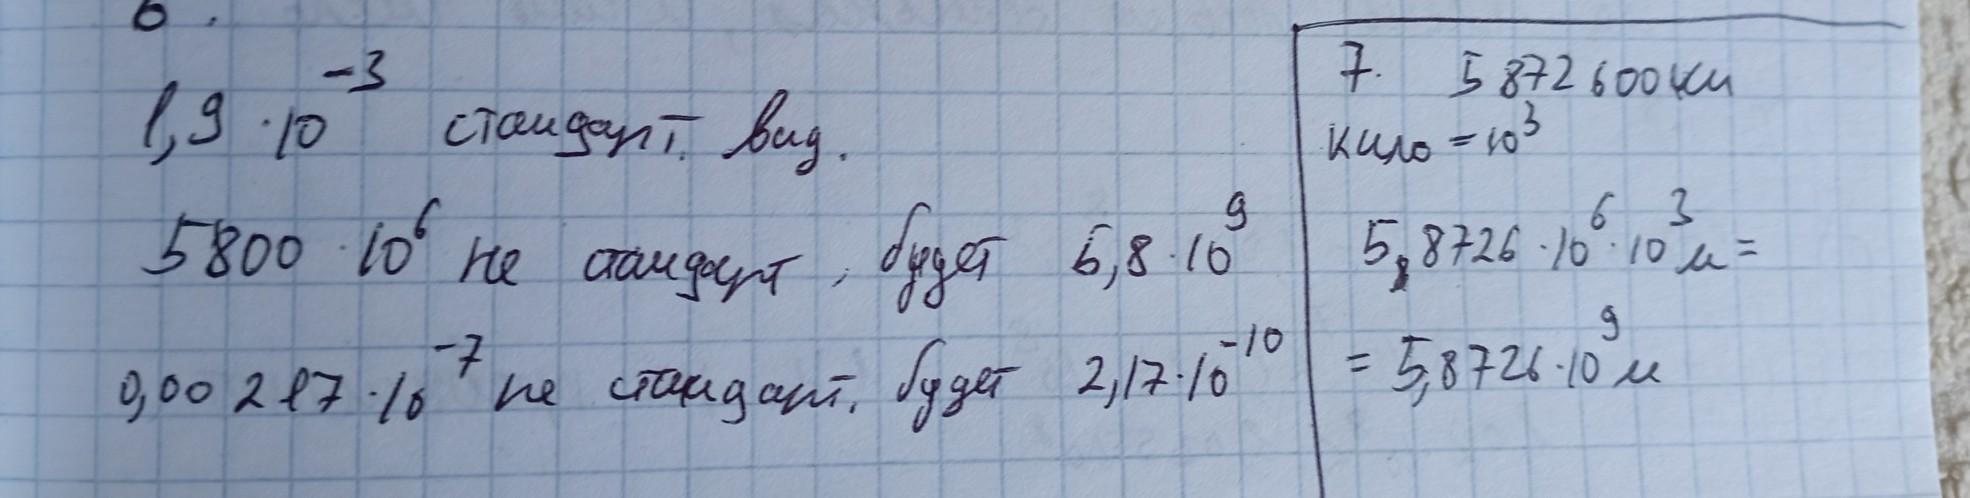 6.
1,9 · 10⁻³ стандарт. вид.
5800 · 10⁶ не стандарт, будет 5,8 · 10⁹
0,00217 · 10⁻⁷ не стандарт. будет 2,17 · 10⁻¹⁰
7. 5872600 км
кило = 10³
5,8726 · 10⁶ · 10³ м =
= 5,8726 · 10⁹ м